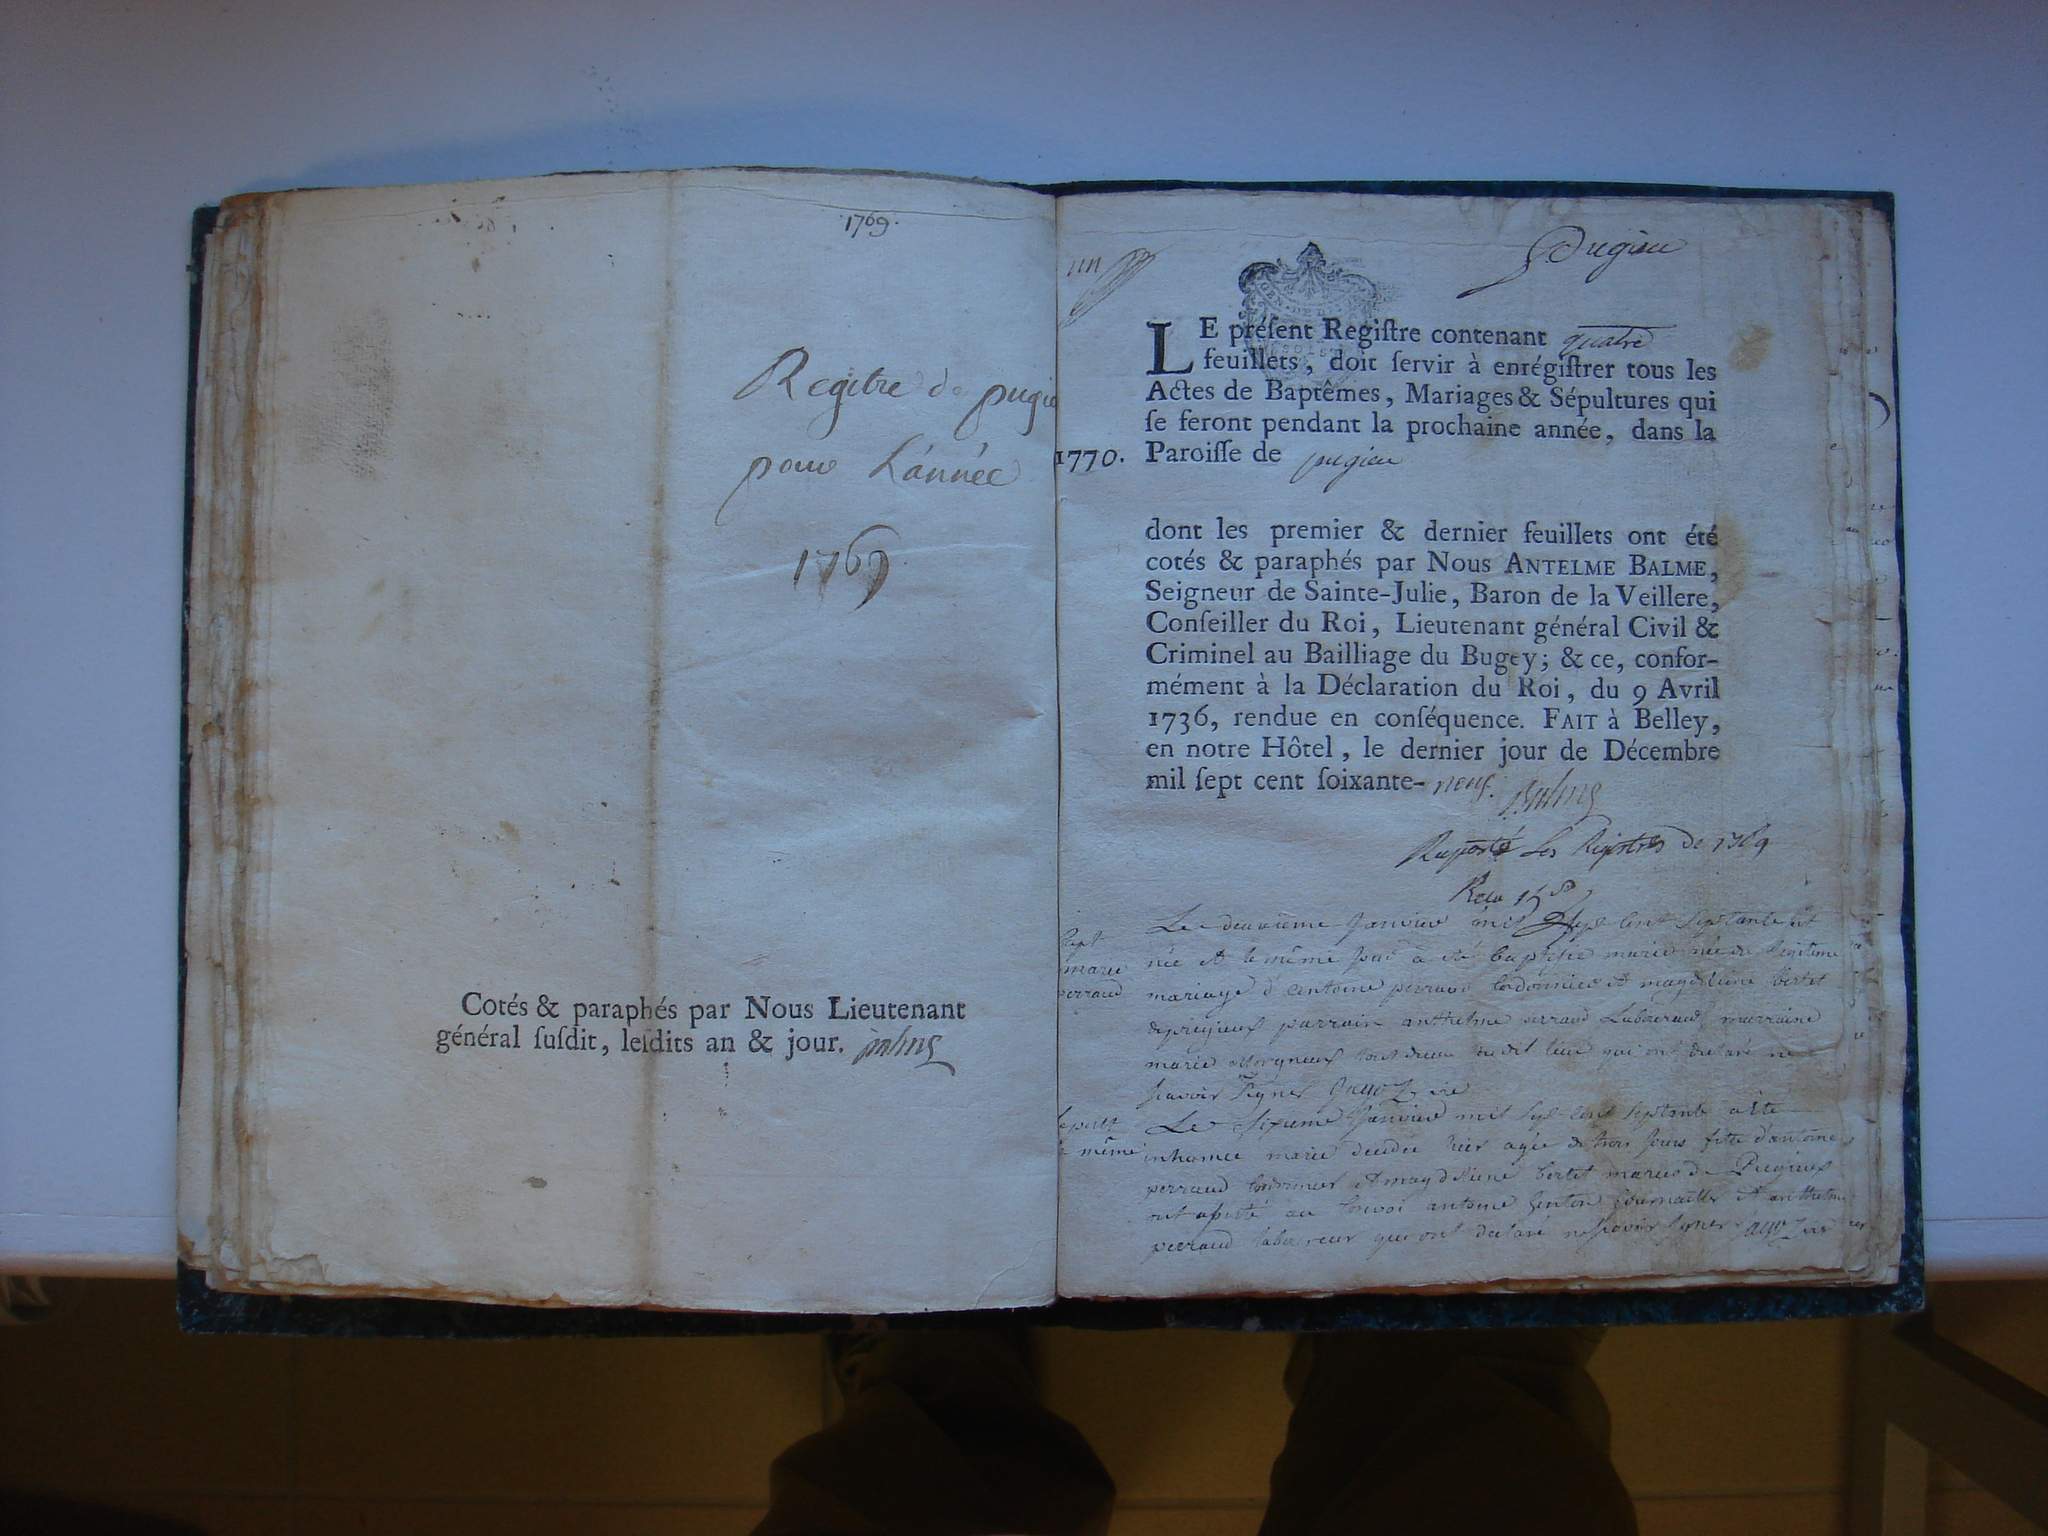 1769.
Regitre de pugie
pour L'année
1769
Cotés & paraphés par Nous Lieutenant
général ſuſdit, leſdits an & jour. Balme
un
Pugieu
LE préſent Regiſtre contenant quatre
feuillets, doit ſervir à enrégiſtrer tous les
Actes de Baptêmes, Mariages & Sépultures qui
ſe feront pendant la prochaine année, dans la
1770. Paroiſſe de pugieu
dont les premier & dernier feuillets ont été
cotés & paraphés par Nous ANTELME BALME,
Seigneur de Sainte-Julie, Baron de la Veillere,
Conſeiller du Roi, Lieutenant général Civil &
Criminel au Bailliage du Bugey; & ce, confor-
mément à la Déclaration du Roi, du 9 Avril
1736, rendue en conſéquence. FAIT à Belley,
en notre Hôtel, le dernier jour de Décembre
mil ſept cent ſoixante-neuf. Balme
Raporté les Registres de 1769
Recu 15
Le deuxième Janvier mil Sept Cent Septante est
née et le même jour a été baptisée marie née du légitime
marie
perraud
mariage d'antoine perraud cordonnier et magdeleine bertet
de pugieux parrain anthelme perraud Laboureur marraine
marie tous deux dudit lieu qui ont declaré ne
sçavoir signer
Le sixieme Janvier mil sept cent septante a été
même inhumée marie decedée hier agée de trois jours fille d'antoine
perraud cordonnier et magdeleine bertet mariés de Pugieux
ont assisté au convoi antoine et anthelme
perraud laboureur qui ont declaré ne sçavoir signer